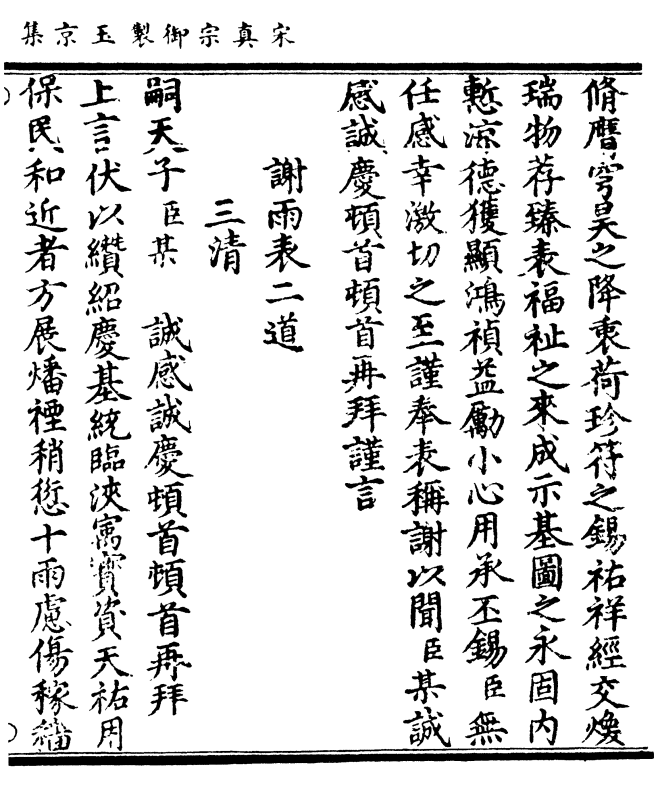 宋真宗御製玉京集
脩曆穹昊之降衷荷珍符之錫祐祥經交煥
瑞物荐臻表福祉之來成示基圖之永固內
慙涼德獲顯鴻禎益勵小心用承丕錫臣無
任感幸激切之至謹奉表稱謝以聞臣某誠
感誠慶頓首頓首再拜謹言
謝雨表二道
三清
嗣天子臣某 誠感誠慶頓首頓首再拜
上言伏以纘紹慶基統臨浹寓實資天祐用
保民和近者方展燔禋稍愆十雨慮傷稼穡